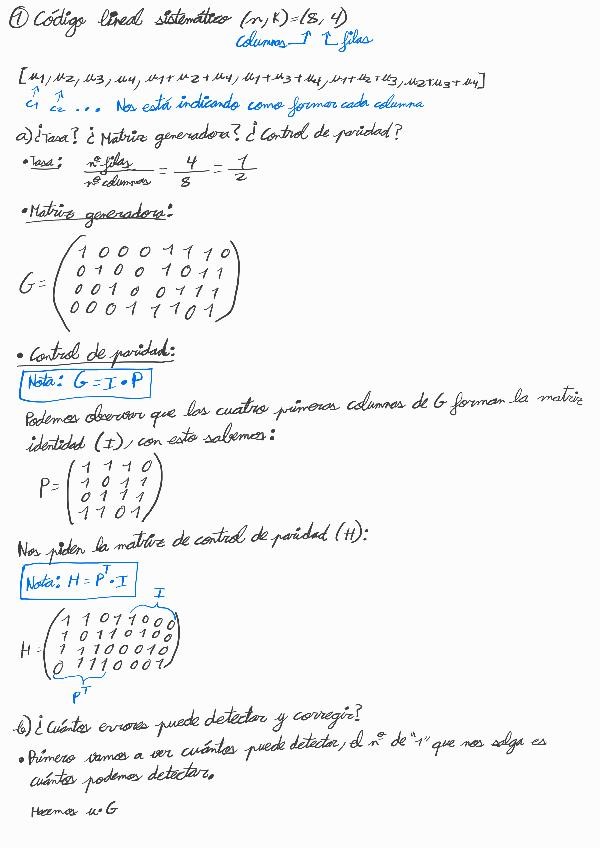 ① Código lineal sistemático (n, k) = (8, 4)
columnas filas
[u1, u2, u3, u4, u1+u2+u4, u1+u3+u4, u1+u2+u3, u2+u3+u4]
c1 c2 ... Nos está indicando como formar cada columna
a) ¿Tasa? ¿Matriz generadora? ¿Control de paridad?
• Tasa: nº filas / nº columnas = 4/8 = 1/2
• Matriz generadora:
1 0 0 0 1 1 1 0
0 1 0 0 1 0 1 1
G = 0 0 1 0 0 1 1 1
0 0 0 1 1 1 0 1
• Control de paridad:
Nota: G = I • P
Podemos observar que las cuatro primeras columnas de G forman la matriz
identidad (I), con esto sabemos:
1 1 1 0
P = 1 0 1 1
0 1 1 1
1 1 0 1
Nos piden la matriz de control de paridad (H):
Nota: H = P^T • I
I
1 1 0 1 1 0 0 0
1 0 1 1 0 1 0 0
H = 1 1 1 0 0 0 1 0
0 1 1 1 0 0 0 1
P^T
b) ¿Cuántos errores puede detectar y corregir?
• Primero vamos a ver cuántos puede detectar, el nº de "1" que nos salga es
cuántos podemos detectar.
Hacemos u•G